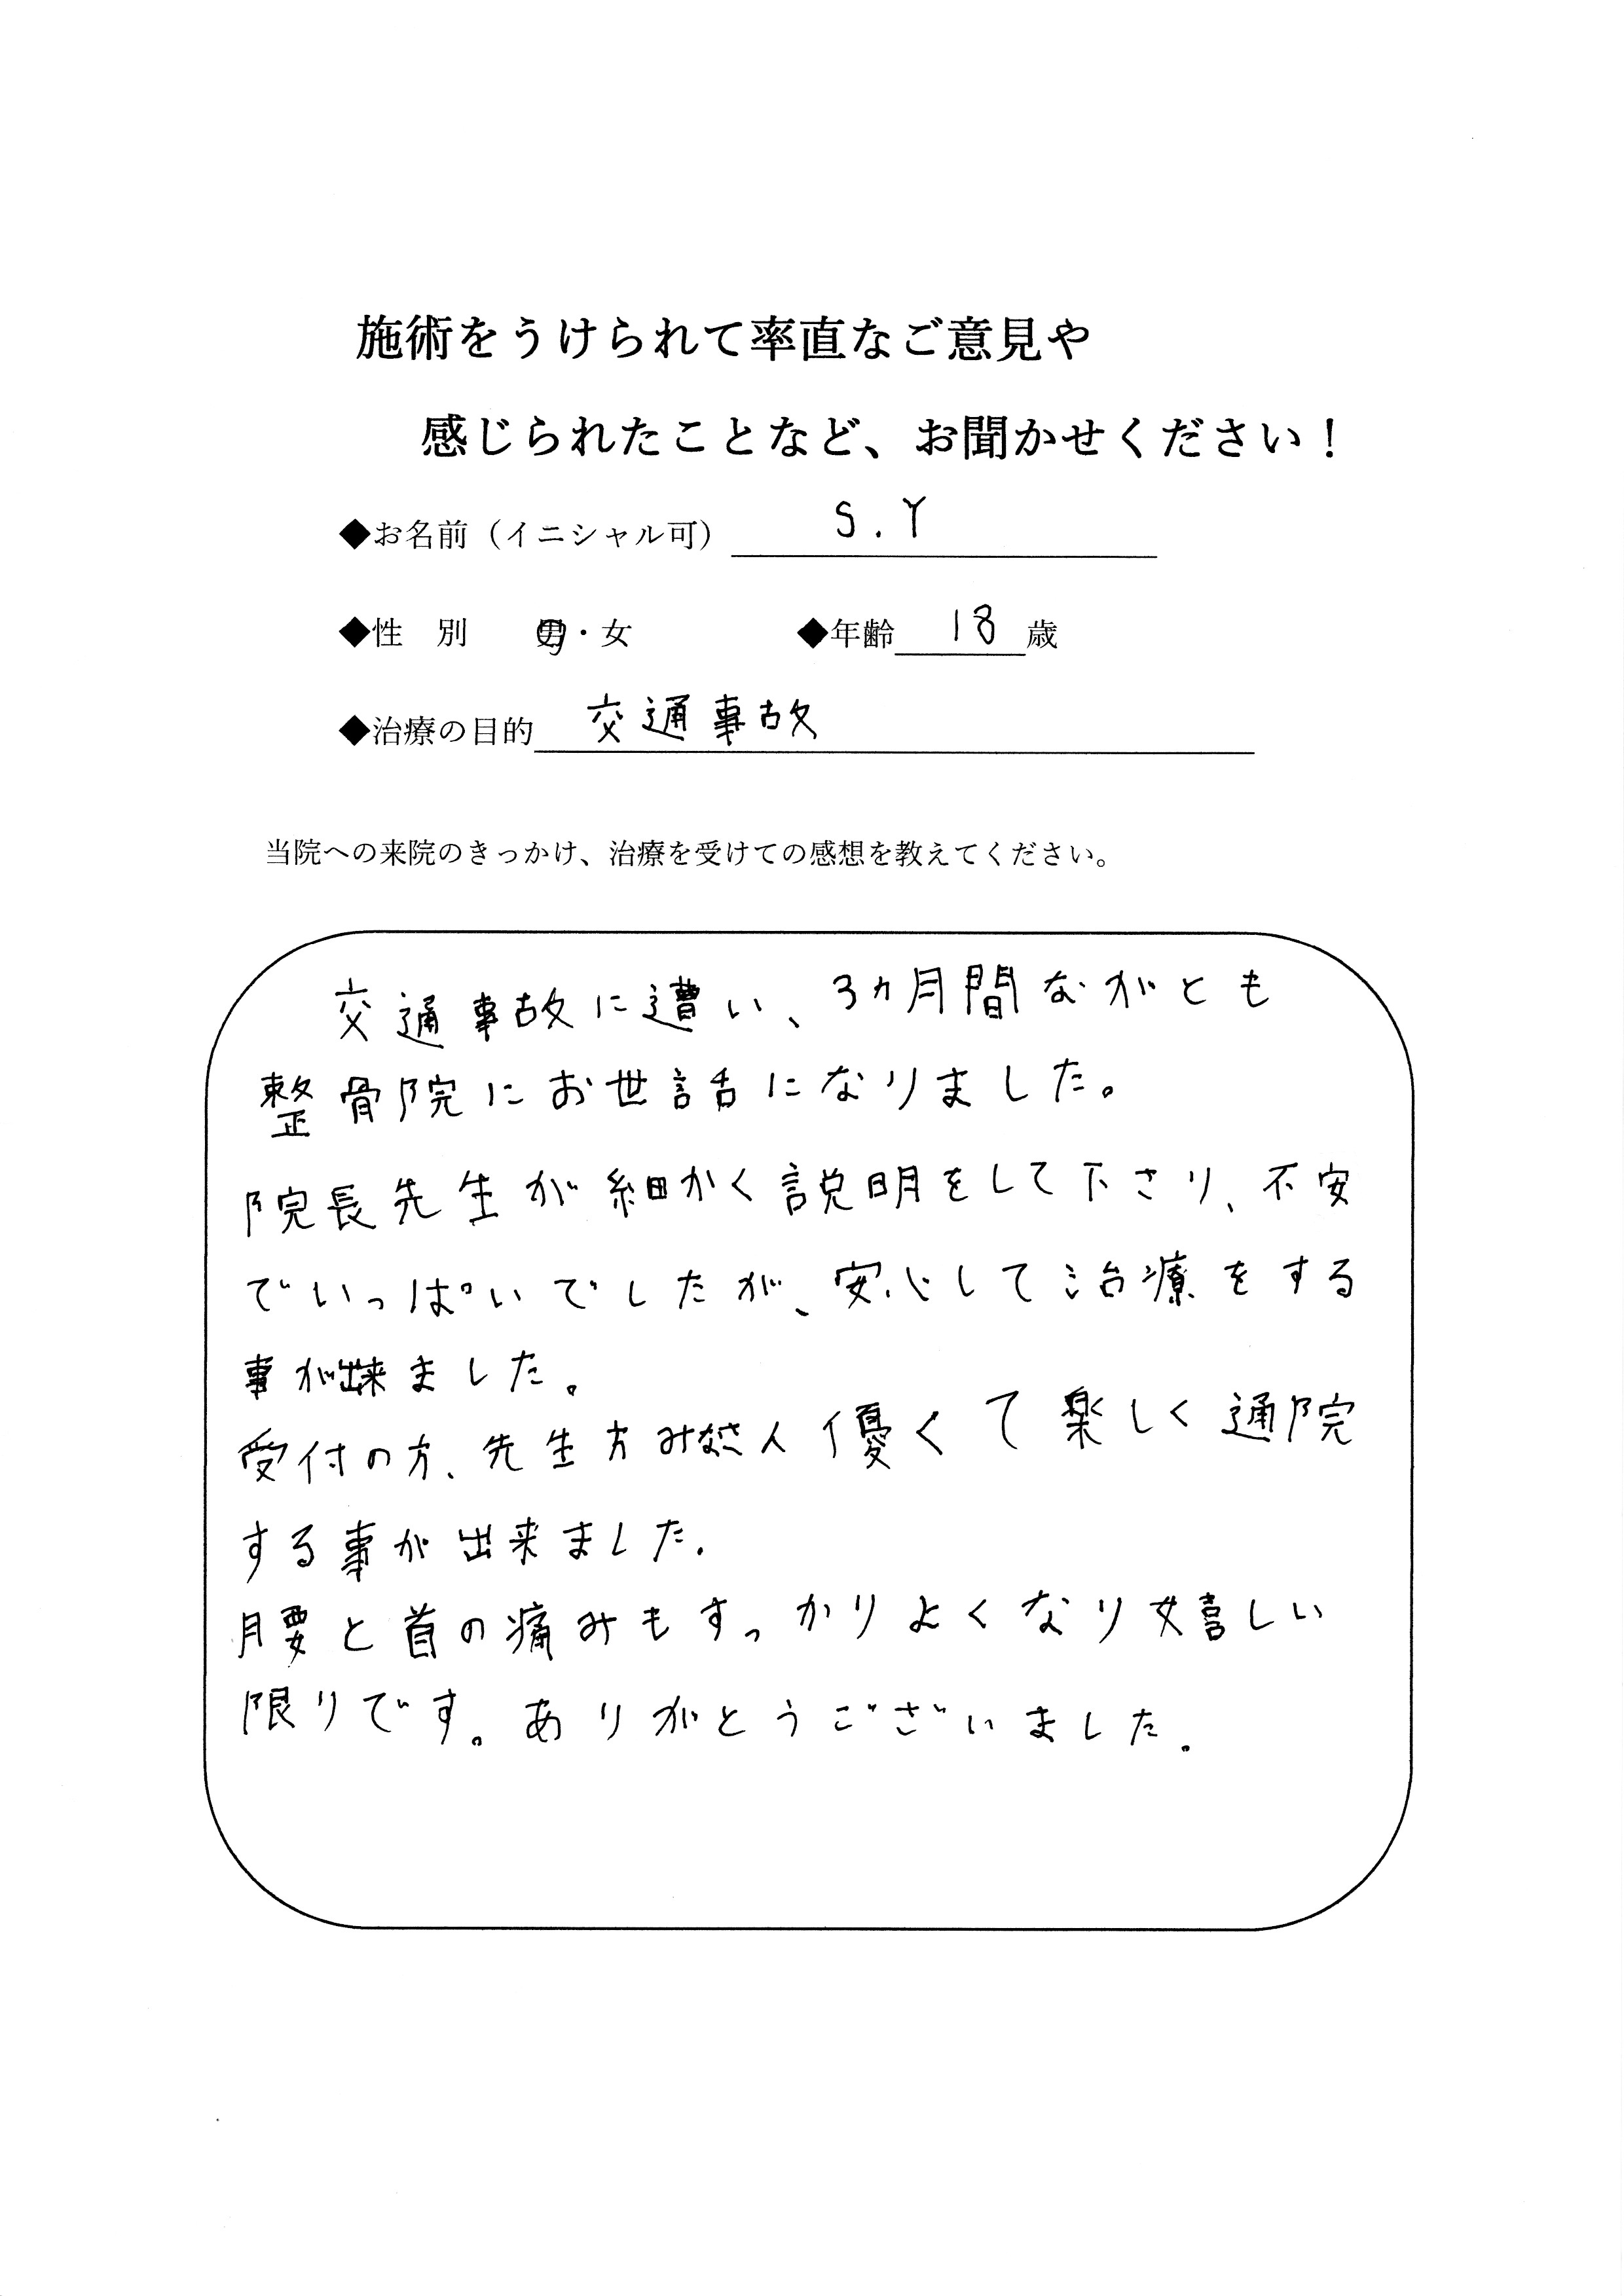 施術をうけられて率直なご意見や
感じられたことなど、お聞かせください！
◆お名前（イニシャル可） S.Y
◆性　別　男・女　◆年齢 18 歳
◆治療の目的 交通事故
当院への来院のきっかけ、治療を受けての感想を教えてください。
交通事故に遭い、3ヵ月間ながとも
整骨院にお世話になりました。
院長先生が細かく説明をして下さり、不安
でいっぱいでしたが、安心して治療をする
事が出来ました。
受付の方、先生方みなさん優くて楽しく通院
する事が出来ました。
腰と首の痛みもすっかりよくなり嬉しい
限りです。ありがとうございました。